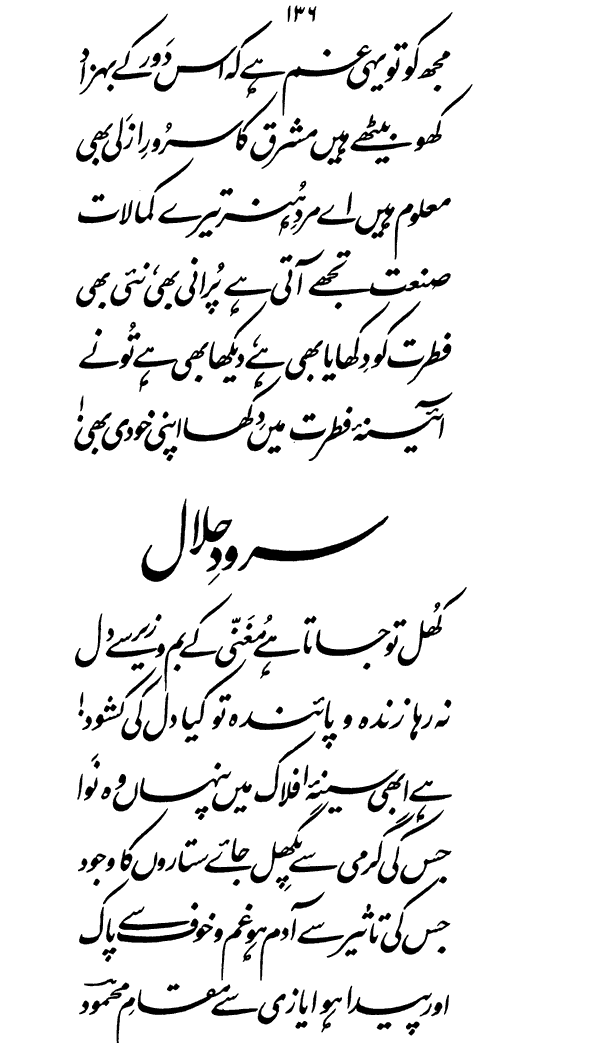 ۱۳۶
مجھ کو تو یہی غم ہے کہ اس دَور کے بہزاد
کھو بیٹھے ہیں مشرق کا سُرورِ ازَلی بھی
معلوم ہیں اے مردِ ہُنر تیرے کمالات
صنعت تجھے آتی ہے پُرانی بھی، نئی بھی
فطرت کو دِکھایا بھی ہے، دیکھا بھی ہے تُو نے
آئینۂ فطرت میں دِکھا اپنی خودی بھی!
سرودِ حلال
کھُل تو جاتا ہے مُغَنّی کے بم و زیر سے دل
نہ رہا زندہ و پائندہ تو کیا دل کی کشود!
ہے ابھی سینۂ افلاک میں پنہاں وہ نَوا
جس کی گرمی سے پگھل جائے ستاروں کا وجود
جس کی تاثیر سے آدم ہو غم و خوف سے پاک
اور پیدا ہو ایازی سے مقامِ محمود